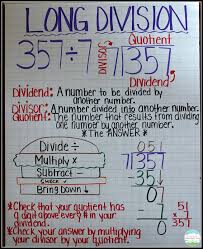 LONG DIVISION
357÷7
Quotient
DIVISOR
7)357
Dividend
Dividend: A number to be divided by
another number.
Divisor: A number divided into another number.
Quotient: The number that results from dividing
one number by another number.
*The ANSWER*
Divide ÷
Multiply x
Subtract -
CHECK ✓
Bring Down ↓
051
7)357
-35↓
07
-7
0
*Check that your quotient has
a digit above every # in your
dividend.
*Check your answer by multiplying
your divisor by your quotient.
51
x7
357